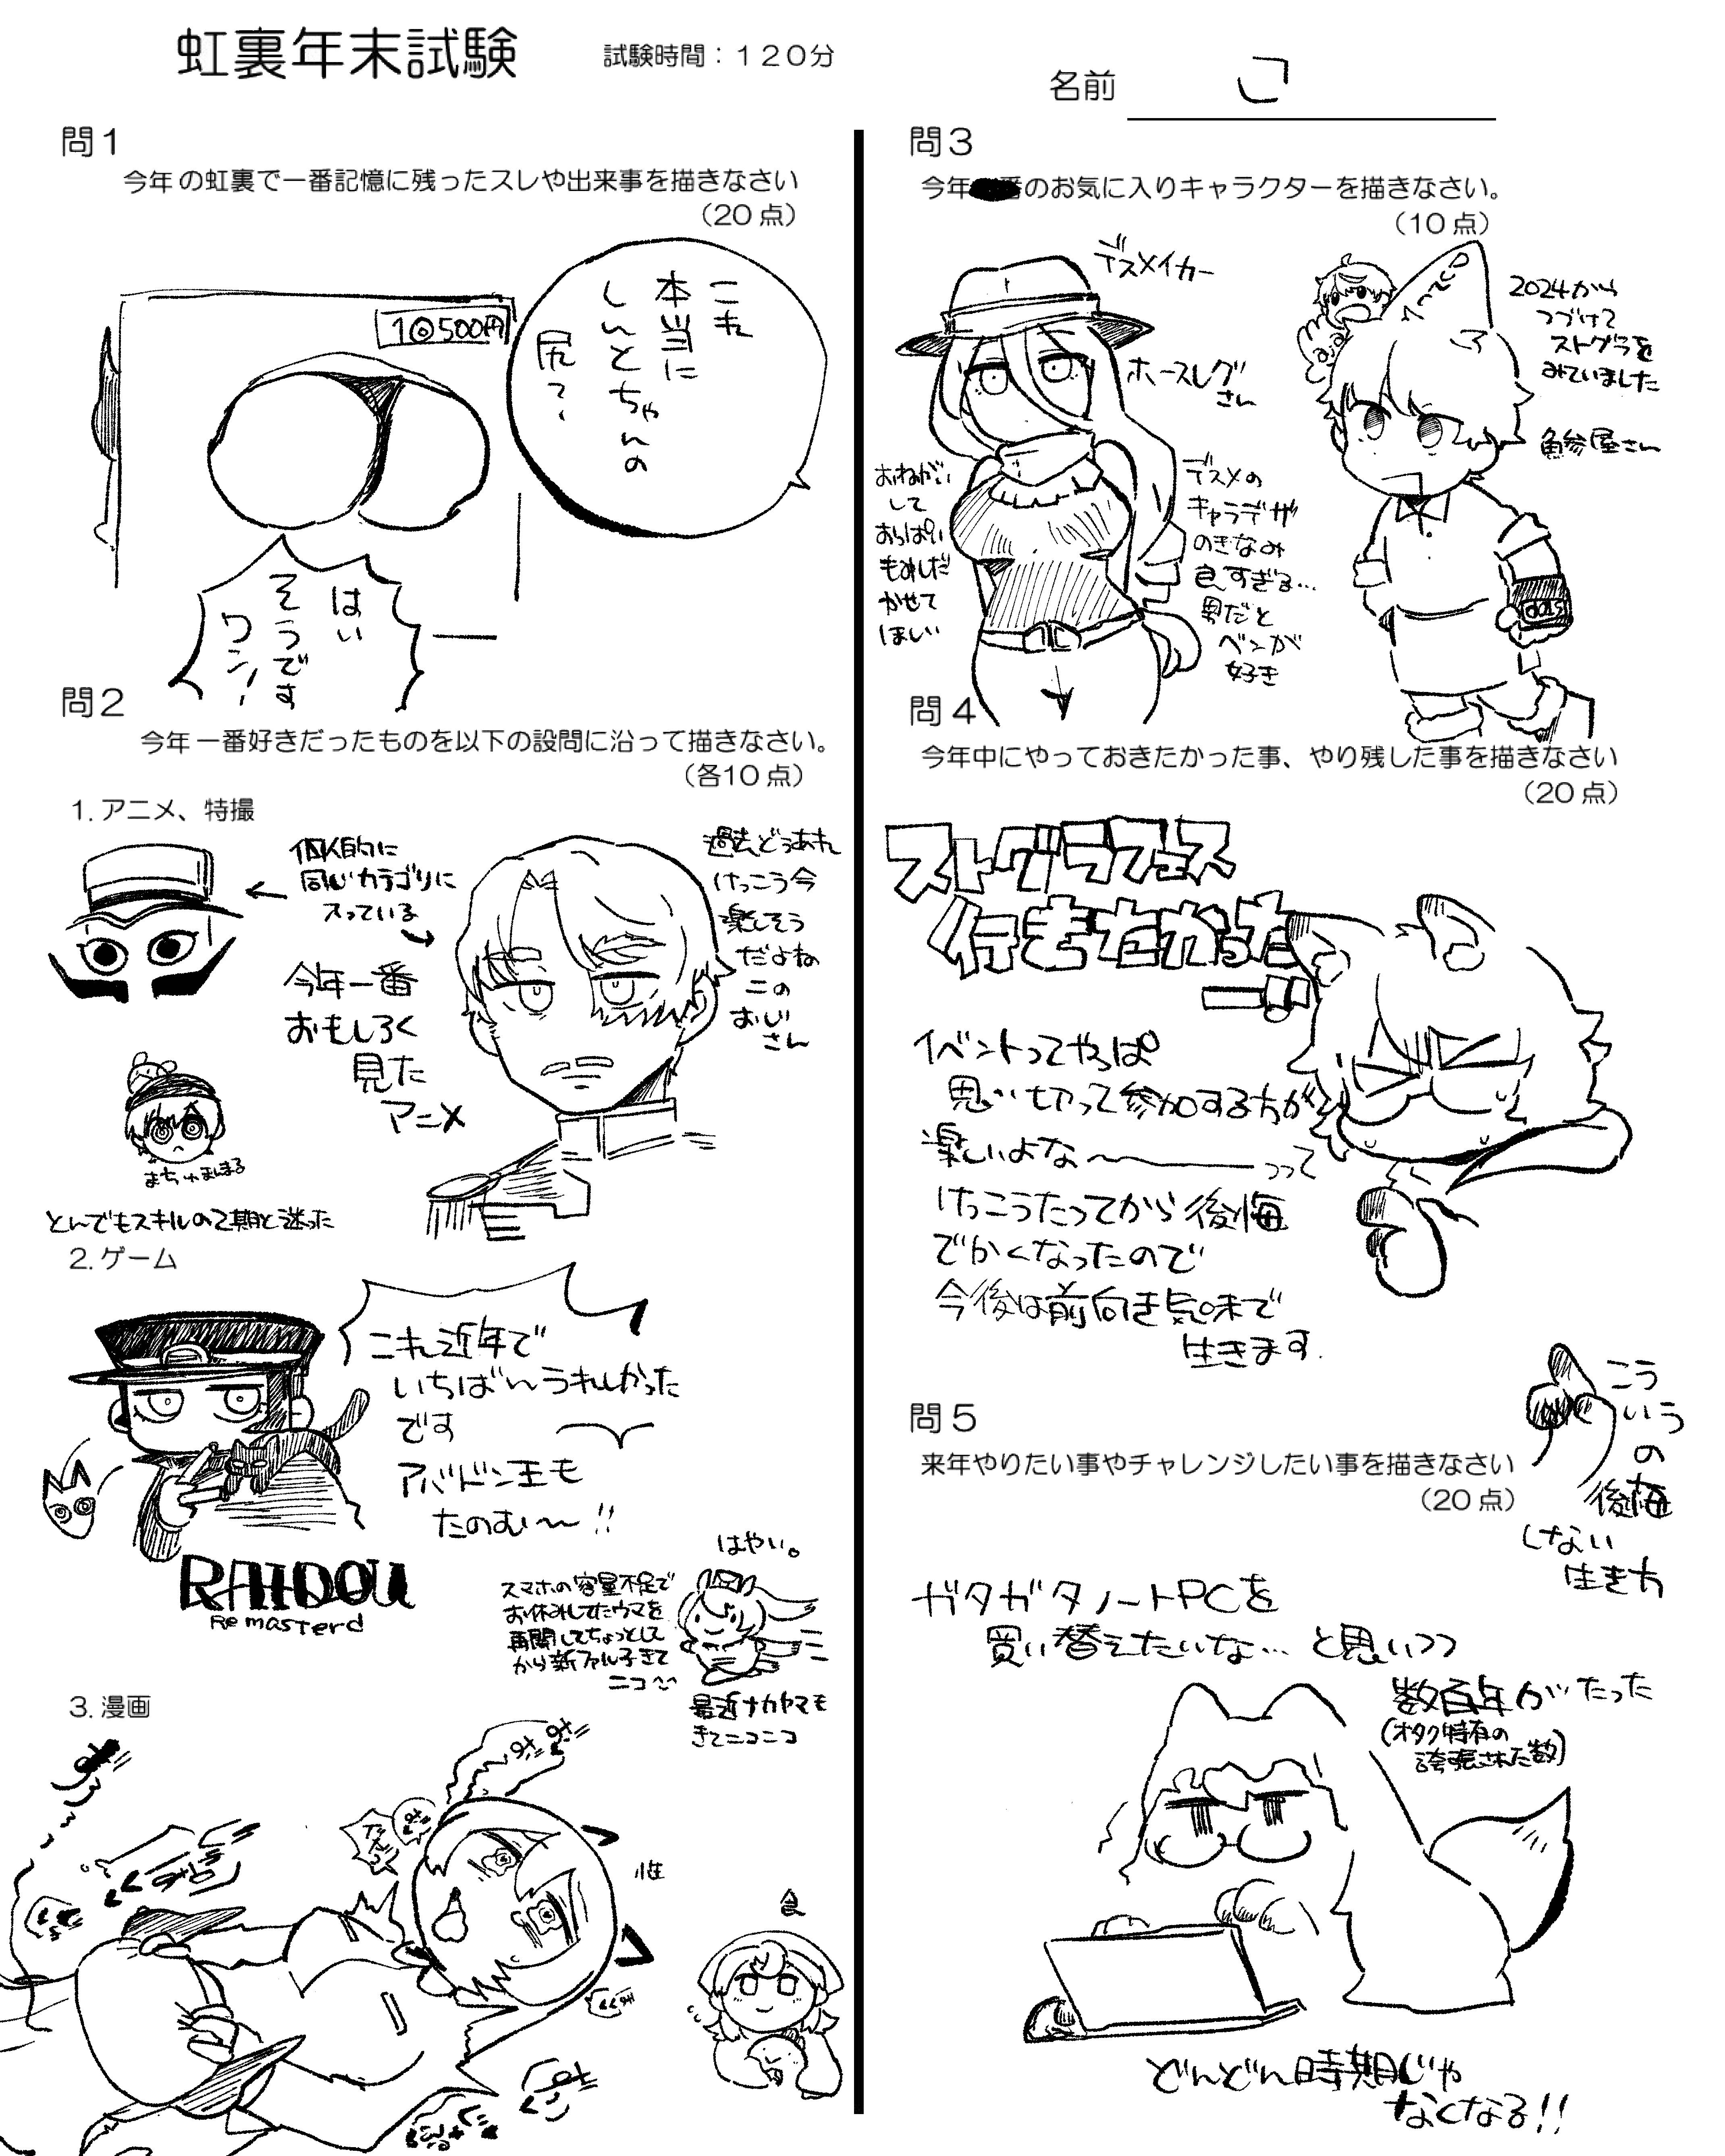 虹裏年末試験
試験時間：１２０分
名前
こ
問1
今年の虹裏で一番記憶に残ったスレや出来事を描きなさい
（20点）
10500円
これ
本当に
しんとちゃんの
尻？
はい
そうです
ワン！
問2
今年一番好きだったものを以下の設問に沿って描きなさい。
（各10点）
1. アニメ、特撮
個人的に
同じカテゴリに
入っている
過去どうあれ
けっこう今
楽しそう
だよね
この
おじ
さん
今年一番
おもしろく
見た
アニメ
まちゅましまろ
とんでもスキルの2期と迷った
2. ゲーム
これ近年で
いちばんうれしかった
です
アバドン王も
たのむ〜!!
RAIDOU
Remasterd
はやい。
スマホの容量不足で
お休みしてたウマを
再開してちょっとして
から新ファル子きて
ニコ
最近ナカヤマも
きてニコニコ
3. 漫画
性
食
問3
今年 番のお気に入りキャラクターを描きなさい。
（10点）
デスメイカー
ホースレグ
さん
おねがい
して
おっぱい
もみしだ
かせて
ほしい
デスメの
キャラデザ
のきなみ
良すぎる…
男だと
ベンが
好き
2024から
つづけて
ストグラを
みていました
魚参屋さん
問4
今年中にやっておきたかった事、やり残した事を描きなさい
（20点）
ストグラフェス
行きたかった
イベントってやっぱ
思い切って参加する方が
楽しいよな〜っって
けっこうたってから後悔
でかくなったので
今後は前向き気味で
生きます.
問5
来年やりたい事やチャレンジしたい事を描きなさい
（20点）
こう
いう
の
後悔
しない
生き方
ガタガタノートPCを
買い替えたいな… と思いつつ
数百年がたった
(オタク特有の
誇張された数)
どんどん時期じゃ
なくなる!!